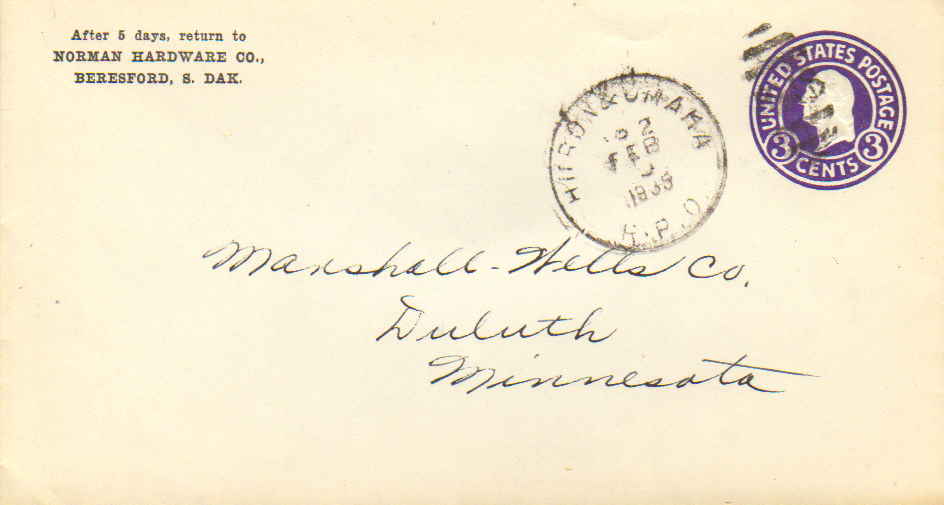 After 5 days, return to
NORMAN HARDWARE CO.,
BERESFORD, S. DAK.
HURON & OMAHA
FEB
R.P.O.
UNITED STATES POSTAGE
3 CENTS 3
Marshall-Wells Co.
Duluth
Minnesota